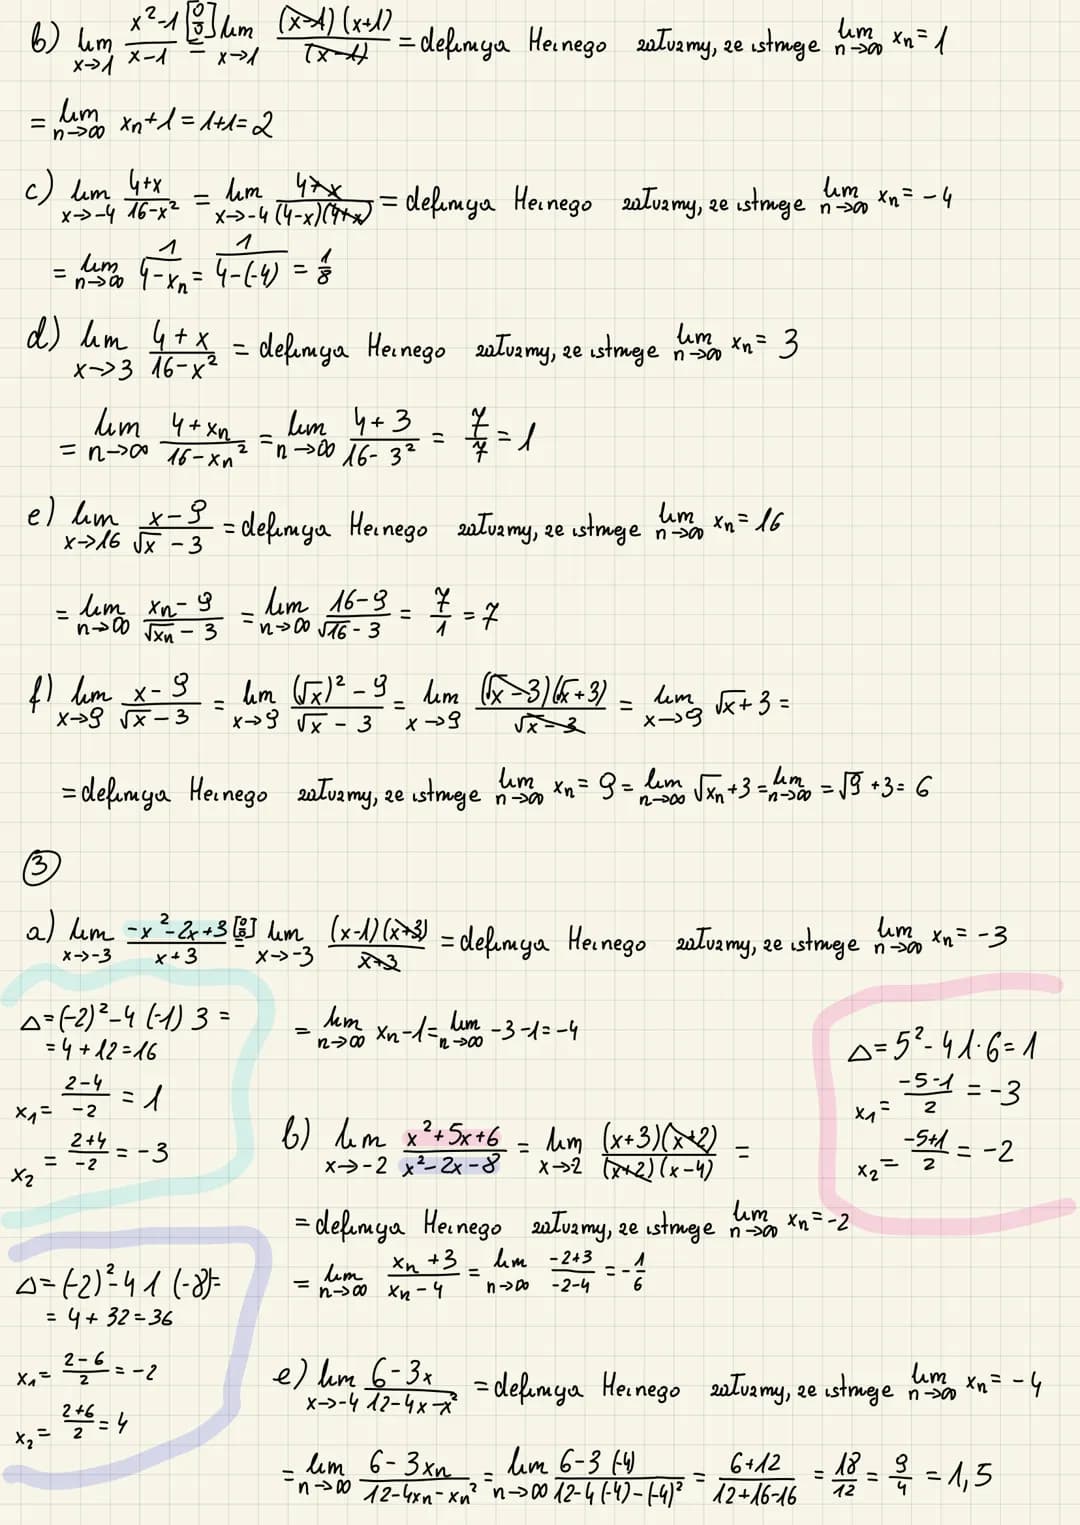 b) lim x→1 x²-1/x-1 [0/0]= lim x→1 (x-1)(x+1)/(x-1) = definicja Heinego załóżmy, że istnieje lim n→∞ xn = 1
= lim n→∞ xn+1 = 1+1 = 2
c) lim x→-4 4+x/16-x² = lim x→-4 4+x/(4-x)(4+x) = definicja Heinego załóżmy, że istnieje lim n→∞ xn = -4
= lim n→∞ 1/4-xn = 1/4-(-4) = 1/8
d) lim x→3 4+x/16-x² = definicja Heinego załóżmy, że istnieje lim n→∞ xn = 3
= lim n→∞ 4+xn/16-xn² = lim n→∞ 4+3/16-3² = 7/7 = 1
e) lim x→16 x-9/√x-3 = definicja Heinego załóżmy, że istnieje lim n→∞ xn = 16
= lim n→∞ xn-9/√xn-3 = lim n→∞ 16-9/√16-3 = 7/1 = 7
f) lim x→9 x-9/√x-3 = lim x→9 (√x)²-9/√x-3 = lim x→9 (√x-3)(√x+3)/√x-3 = lim x→9 √x+3 =
= definicja Heinego załóżmy, że istnieje lim n→∞ xn = 9 = lim n→∞ √xn+3 = lim n→∞ = √9+3 = 6
③
a) lim x→-3 -x²-2x+3/x+3 [0/0]= lim x→-3 (x-1)(x+3)/x+3 = definicja Heinego załóżmy, że istnieje lim n→∞ xn = -3
= lim n→∞ xn-1 = lim n→∞ -3-1 = -4
Δ=(-2)²-4(-1)3 =
= 4+12=16
x₁= 2-4/-2 = 1
x₂ = 2+4/-2 = -3
Δ= 5²-4 1·6=1
x₁= -5-1/2 = -3
x₂= -5+1/2 = -2
b) lim x→-2 x²+5x+6/x²-2x-8 = lim x→2 (x+3)(x+2)/(x+2)(x-4) =
= definicja Heinego załóżmy, że istnieje lim n→∞ xn = -2
= lim n→∞ xn+3/xn-4 = lim n→∞ -2+3/-2-4 = -1/6
Δ=(-2)²-4 1 (-8)=
= 4+32=36
x₁= 2-6/2 = -2
x₂= 2+6/2 = 4
e) lim x→-4 6-3x/12-4x-x² = definicja Heinego załóżmy, że istnieje lim n→∞ xn = -4
= lim n→∞ 6-3xn/12-4xn-xn² = lim n→∞ 6-3(-4)/12-4(-4)-(-4)² = 6+12/12+16-16 = 18/12 = 9/4 = 1,5